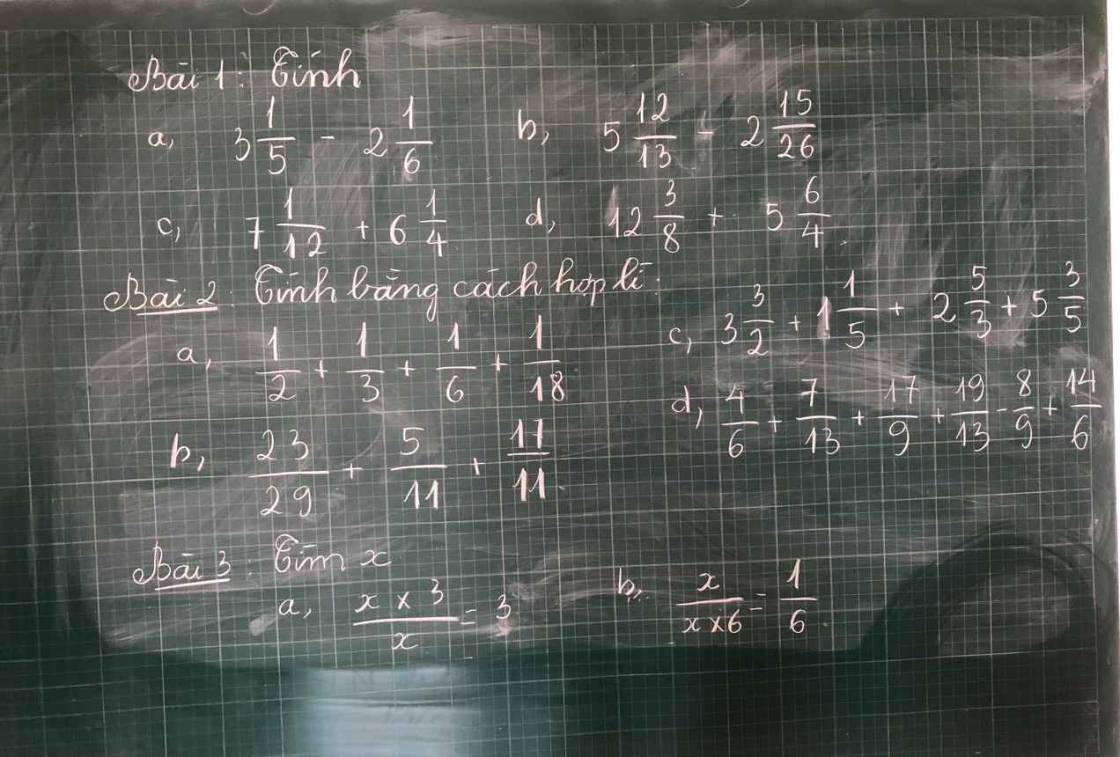 Bài 1: Tính
a, 3 1/5 - 2 1/6 b, 5 12/13 - 2 15/26
c, 7 1/12 + 6 1/4 d, 12 3/8 + 5 6/4
Bài 2: Tính bằng cách hợp lí:
a, 1/2 + 1/3 + 1/6 + 1/18
b, 23/29 + 5/11 + 17/11
c, 3 3/2 + 1 1/5 + 2 5/3 + 5 3/5
d, 4/6 + 7/13 + 17/9 + 19/13 - 8/9 + 14/6
Bài 3: Tìm x
a, x × 3/x = 3 b, x/x×6 = 1/6